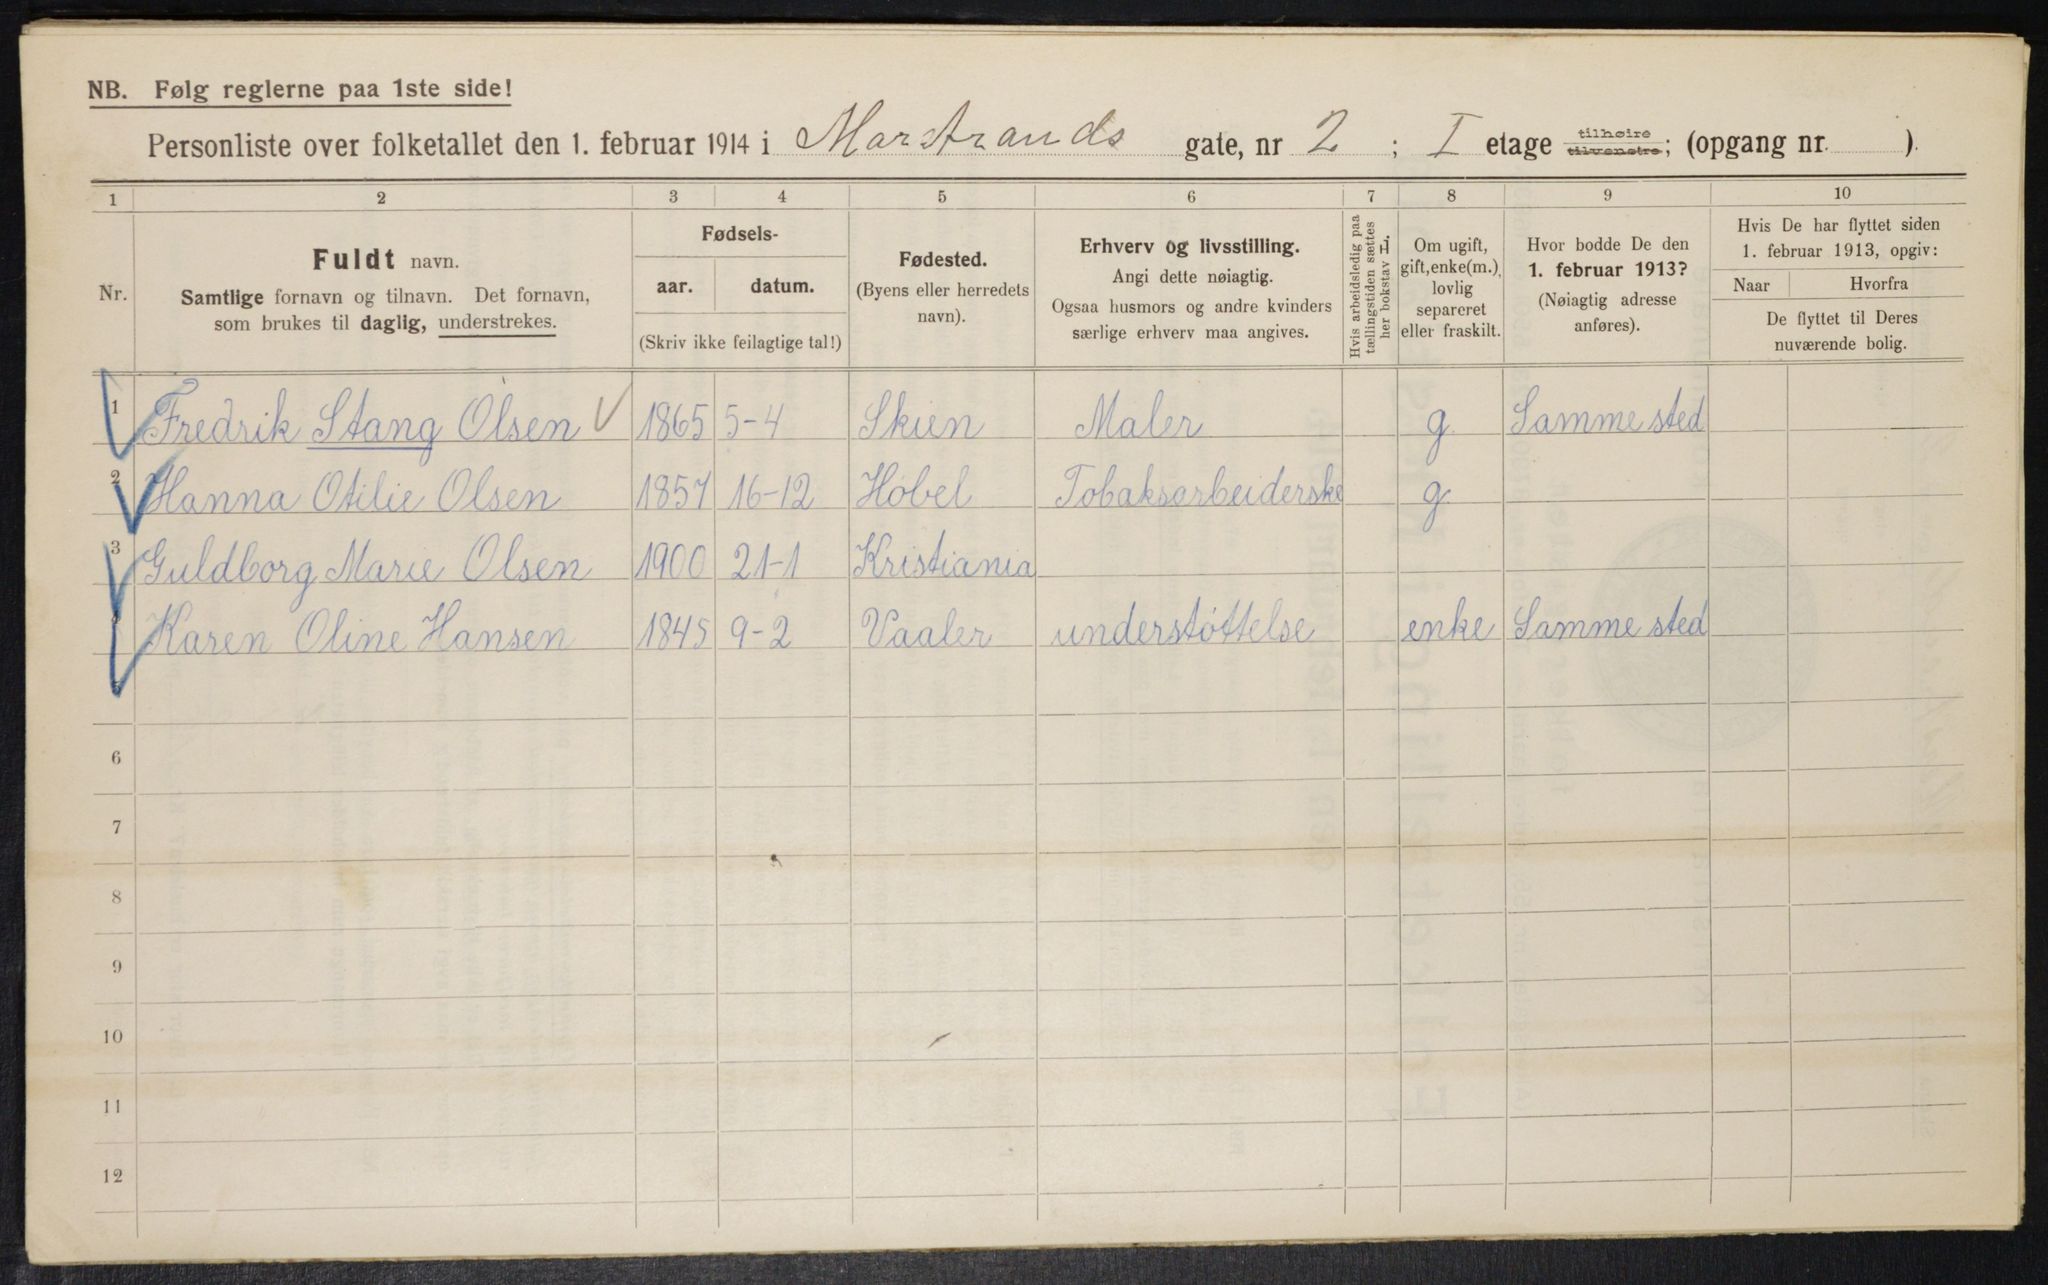 NB. Følg reglerne paa 1ste side!
Personliste over folketallet den 1. februar 1914 i Marstrands gate, nr 2 ; I etage tilhøire tilvenstre; (opgang nr. ).
1 2 3 4 5 6 7 8 9 10
Nr.
Fuldt navn.
Samtlige fornavn og tilnavn. Det fornavn,
som brukes til daglig, understrekes.
Fødsels-
aar. datum.
(Skriv ikke feilagtige tal!)
Fødested.
(Byens eller herredets
navn).
Erhverv og livsstilling.
Angi dette nøiagtig.
Ogsaa husmors og andre kvinders
særlige erhverv maa angives.
Hvis arbeidsledig paa
tællingstiden sættes
her bokstav L.
Om ugift,
gift, enke(m.),
lovlig
separeret
eller fraskilt.
Hvor bodde De den
1. februar 1913?
(Nøiagtig adresse
anføres).
Hvis De har flyttet siden
1. februar 1913, opgiv:
Naar Hvorfra
De flyttet til Deres
nuværende bolig.
1 Fredrik Stang Olsen 1865 5-4 Skien Maler g. Samme sted
2 Hanna Otilie Olsen 1857 16-12 Hobøl Tobaksarbeiderske g.
3 Guldborg Marie Olsen 1900 21-1 Kristiania
Karen Oline Hansen 1845 9-2 Vaaler understøttelse enke Samme sted
5
6
7
8
9
10
11
12